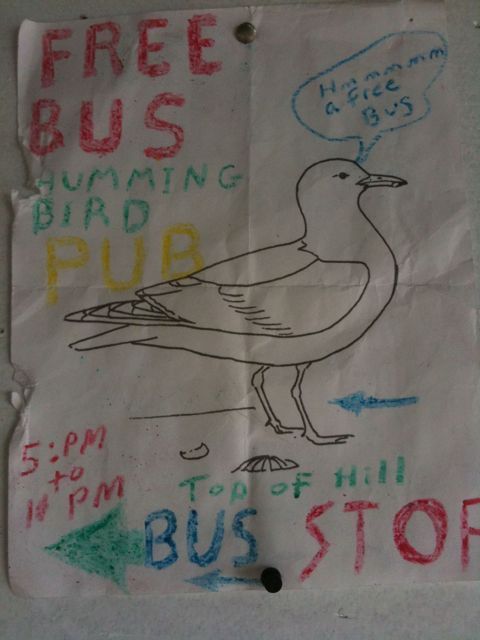 FREE
BUS
HUMMING
BIRD
PUB
Hmmmmmm
a free
BUS
5:PM
to
11 PM
Top of Hill
BUS STOP